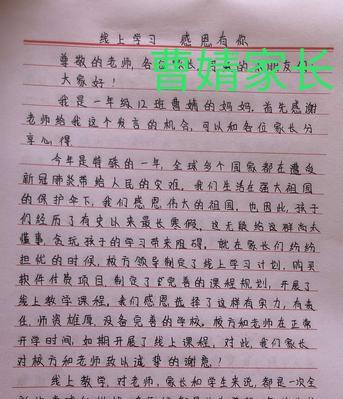 线上学习 感恩有你
尊敬的老师,各位家长,
曹婧家长
大家好!
我是一年级12班曹婧的妈妈,首先感谢
老师给我这个发言的机会,可以和各位家长分
享心得
今年是特殊的一年,全球多个国家都在遭受
新冠肺炎带给人民的灾难,我们生活在强大祖国
的保护伞下,我们感恩伟大的祖国,也因此,孩子
们经历了有史以来最长寒假,这无疑给这群尚未
懂事,贪玩孩子的学习带来阻碍,就在家长们纷纷
担忧的时候,校方领导制定了线上学习计划,购买
软件付费项目,制定了完善的课程规划,开展了
线上教学课程,我们感恩选择了这样有实力,有责
任,师资雄厚,设备完善的学校。校方和老师在正常
开学时间,如期开展了线上课程,对此,我们家长
对校方和老师致以诚挚的谢意!
线上教学,对老师,家长和学生来说,都是一次全